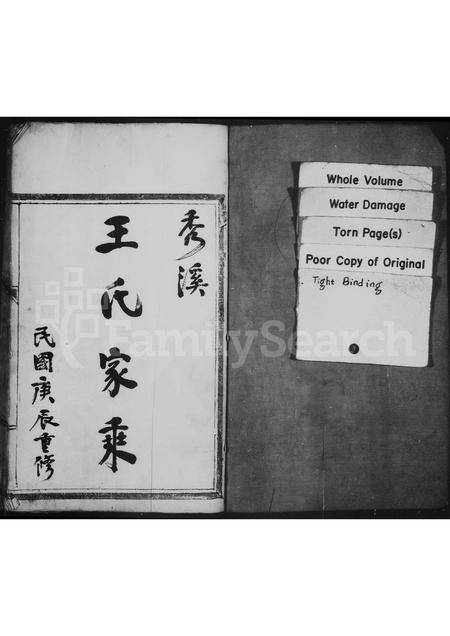 秀溪
王氏家乘
民國庚辰重修
Whole Volume
Water Damage
Torn Page(s)
Poor Copy of Original
Tight Binding
FamilySearch